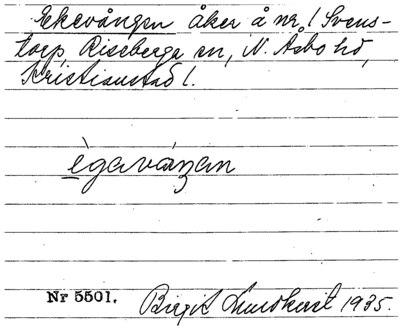 Ekevången åker å nr 1 Svens-
torp, Riseberga sn, N. Åsbo hd,
Kristianstad l.
ègavàŋan
Nr 5501. Birgit Lundkvist 1935.